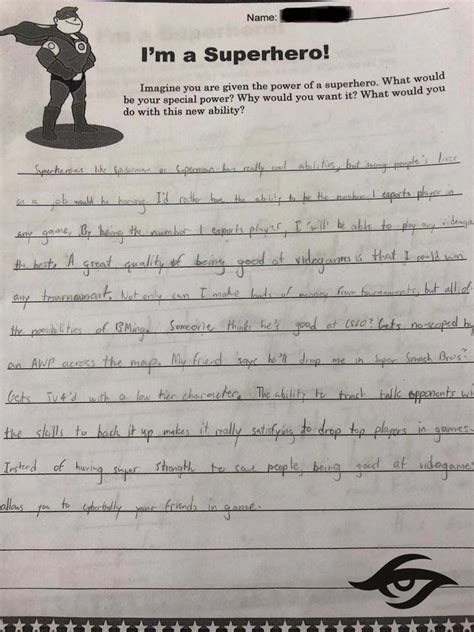 Name:
I'm a Superhero!
Imagine you are given the power of a superhero. What would
be your special power? Why would you want it? What would you
do with this new ability?
Superheroes like Spiderman or Superman have really cool abilities, but saving people's lives
as a job would be boring. I'd rather have the ability to be the number 1 esports player in
any game. By being the number 1 esports player, I will be able to play any videogame
the best. A great quality of being good at videogames is that I could win
any tournament. Not only can I make loads of money from tournaments, but all of
the possibilities of BMing. Someone thinks he's good at CSGO? Gets no-scoped by
an AWP across the map. My friend says he'll drop me in Super Smash Bros?
Gets JV4'd with a low tier character. The ability to trash talk opponents w
the skills to back it up makes it really satisfying to drop top players in games.
Instead of having super strength to save people, being good at videogames
allows you to cyberbully your friends in game.